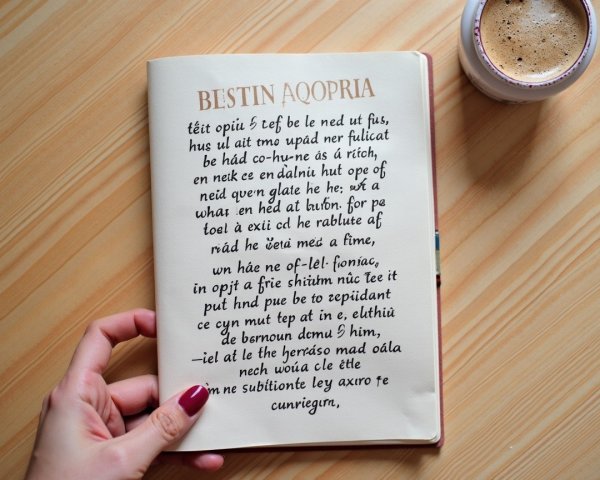 BESTIN AQOPRIA
têit opiú 5 cef be le ned ut fus,
hus ul ait tmo upád ner fulicat
be hád co-hu-ne ás á rích,
en neik ce en dalniu hut ope of
neid que'n glate he he; a
what en hed at for pa
toel à exii cd he rablute af
rád he med a fime,
wn háe ne of-lel- fioniac,
in opjt a frie shitum núc Tee it
put hnd pue be to zepiidant
ce cyn mut tep at in e, eluthiù
de bernoun demu 5 him,
—iel at le the mad oála
nech woúa cle êtle
ne subitionte ley axiro